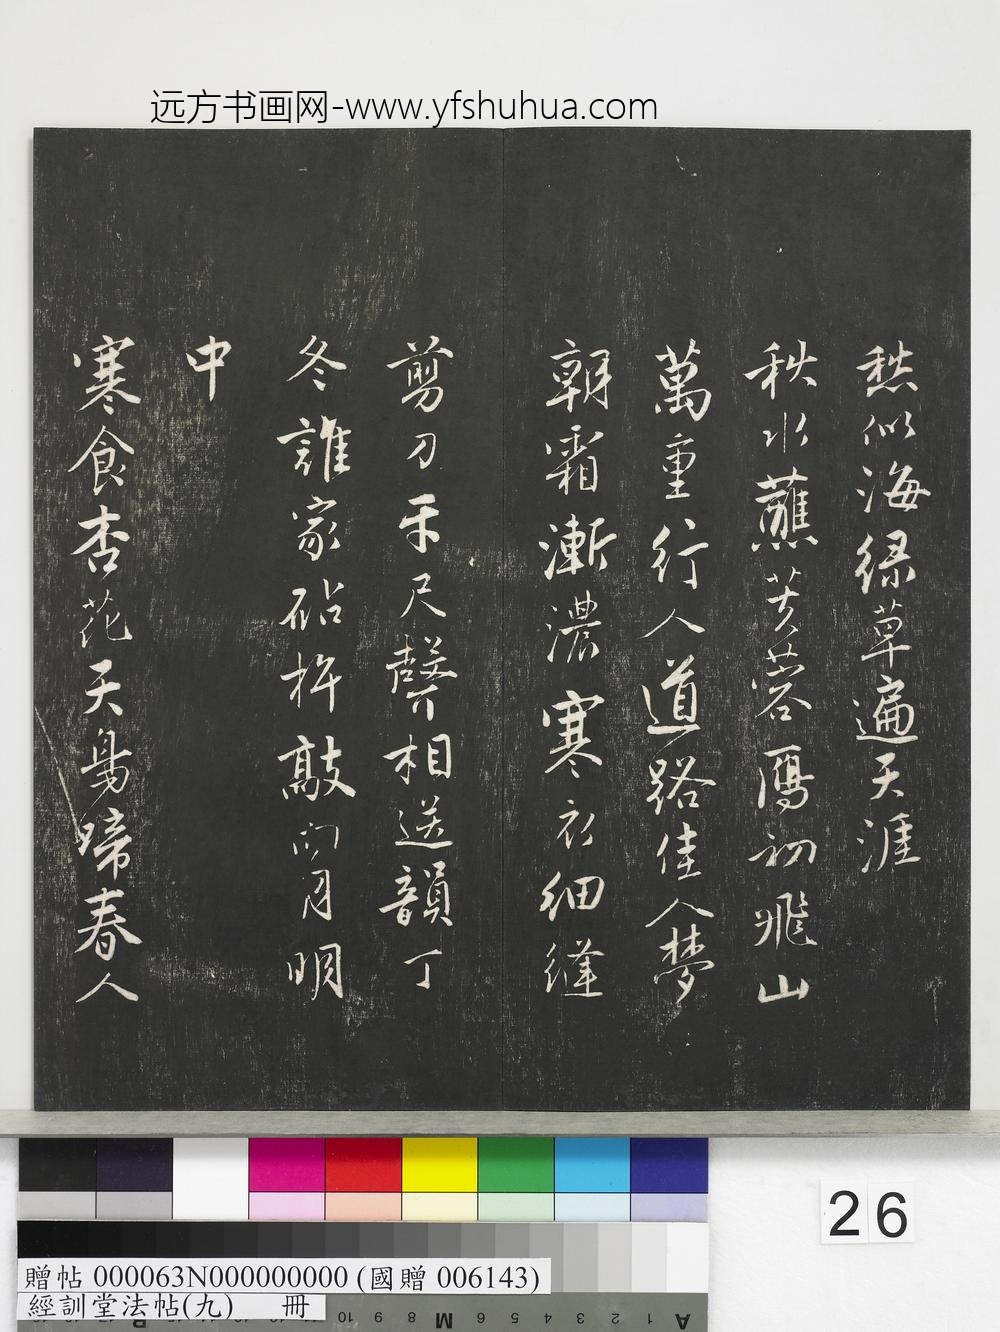 远方书画网-www.yfshuhua.com
愁似海绿草遍天涯
秋水蘸芙蓉鴈初飛山
萬重行人道路佳人夢
朝霜漸濃寒衣細縫
剪刀牙尺聲相送韻丁
冬誰家砧杵敲向月明
中
寒食杏花天鳥啼春人
26
贈帖 000063N000000000 (國贈 006143)
經訓堂法帖(九) 冊
R 10 9 8 M 6 5 4 3 2 1 A